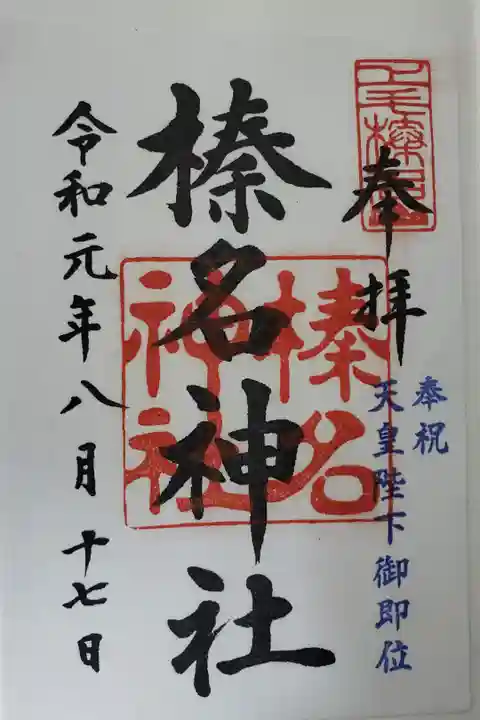 奉拝
上毛榛名
奉祝
天皇陛下御即位
榛名神社
榛名
神社
令和元年八月十七日